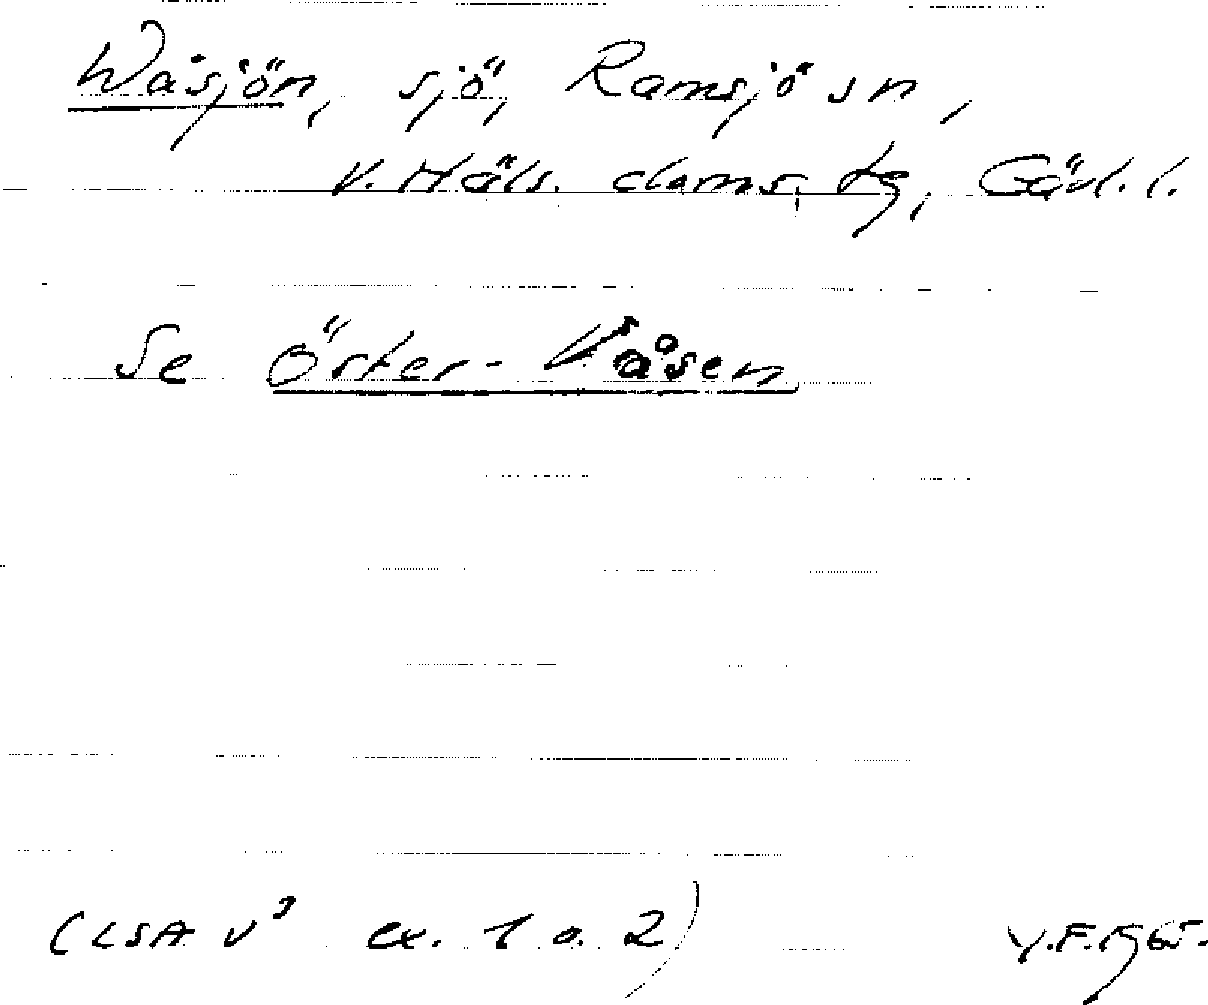 Wåsjön, sjö, Ramsjö sn,
V. Häls. doms. tg, Gävl. l.
Se Öster-Våsen
(LSA V³ ex. 1 o. 2)
Y.F. 1965.